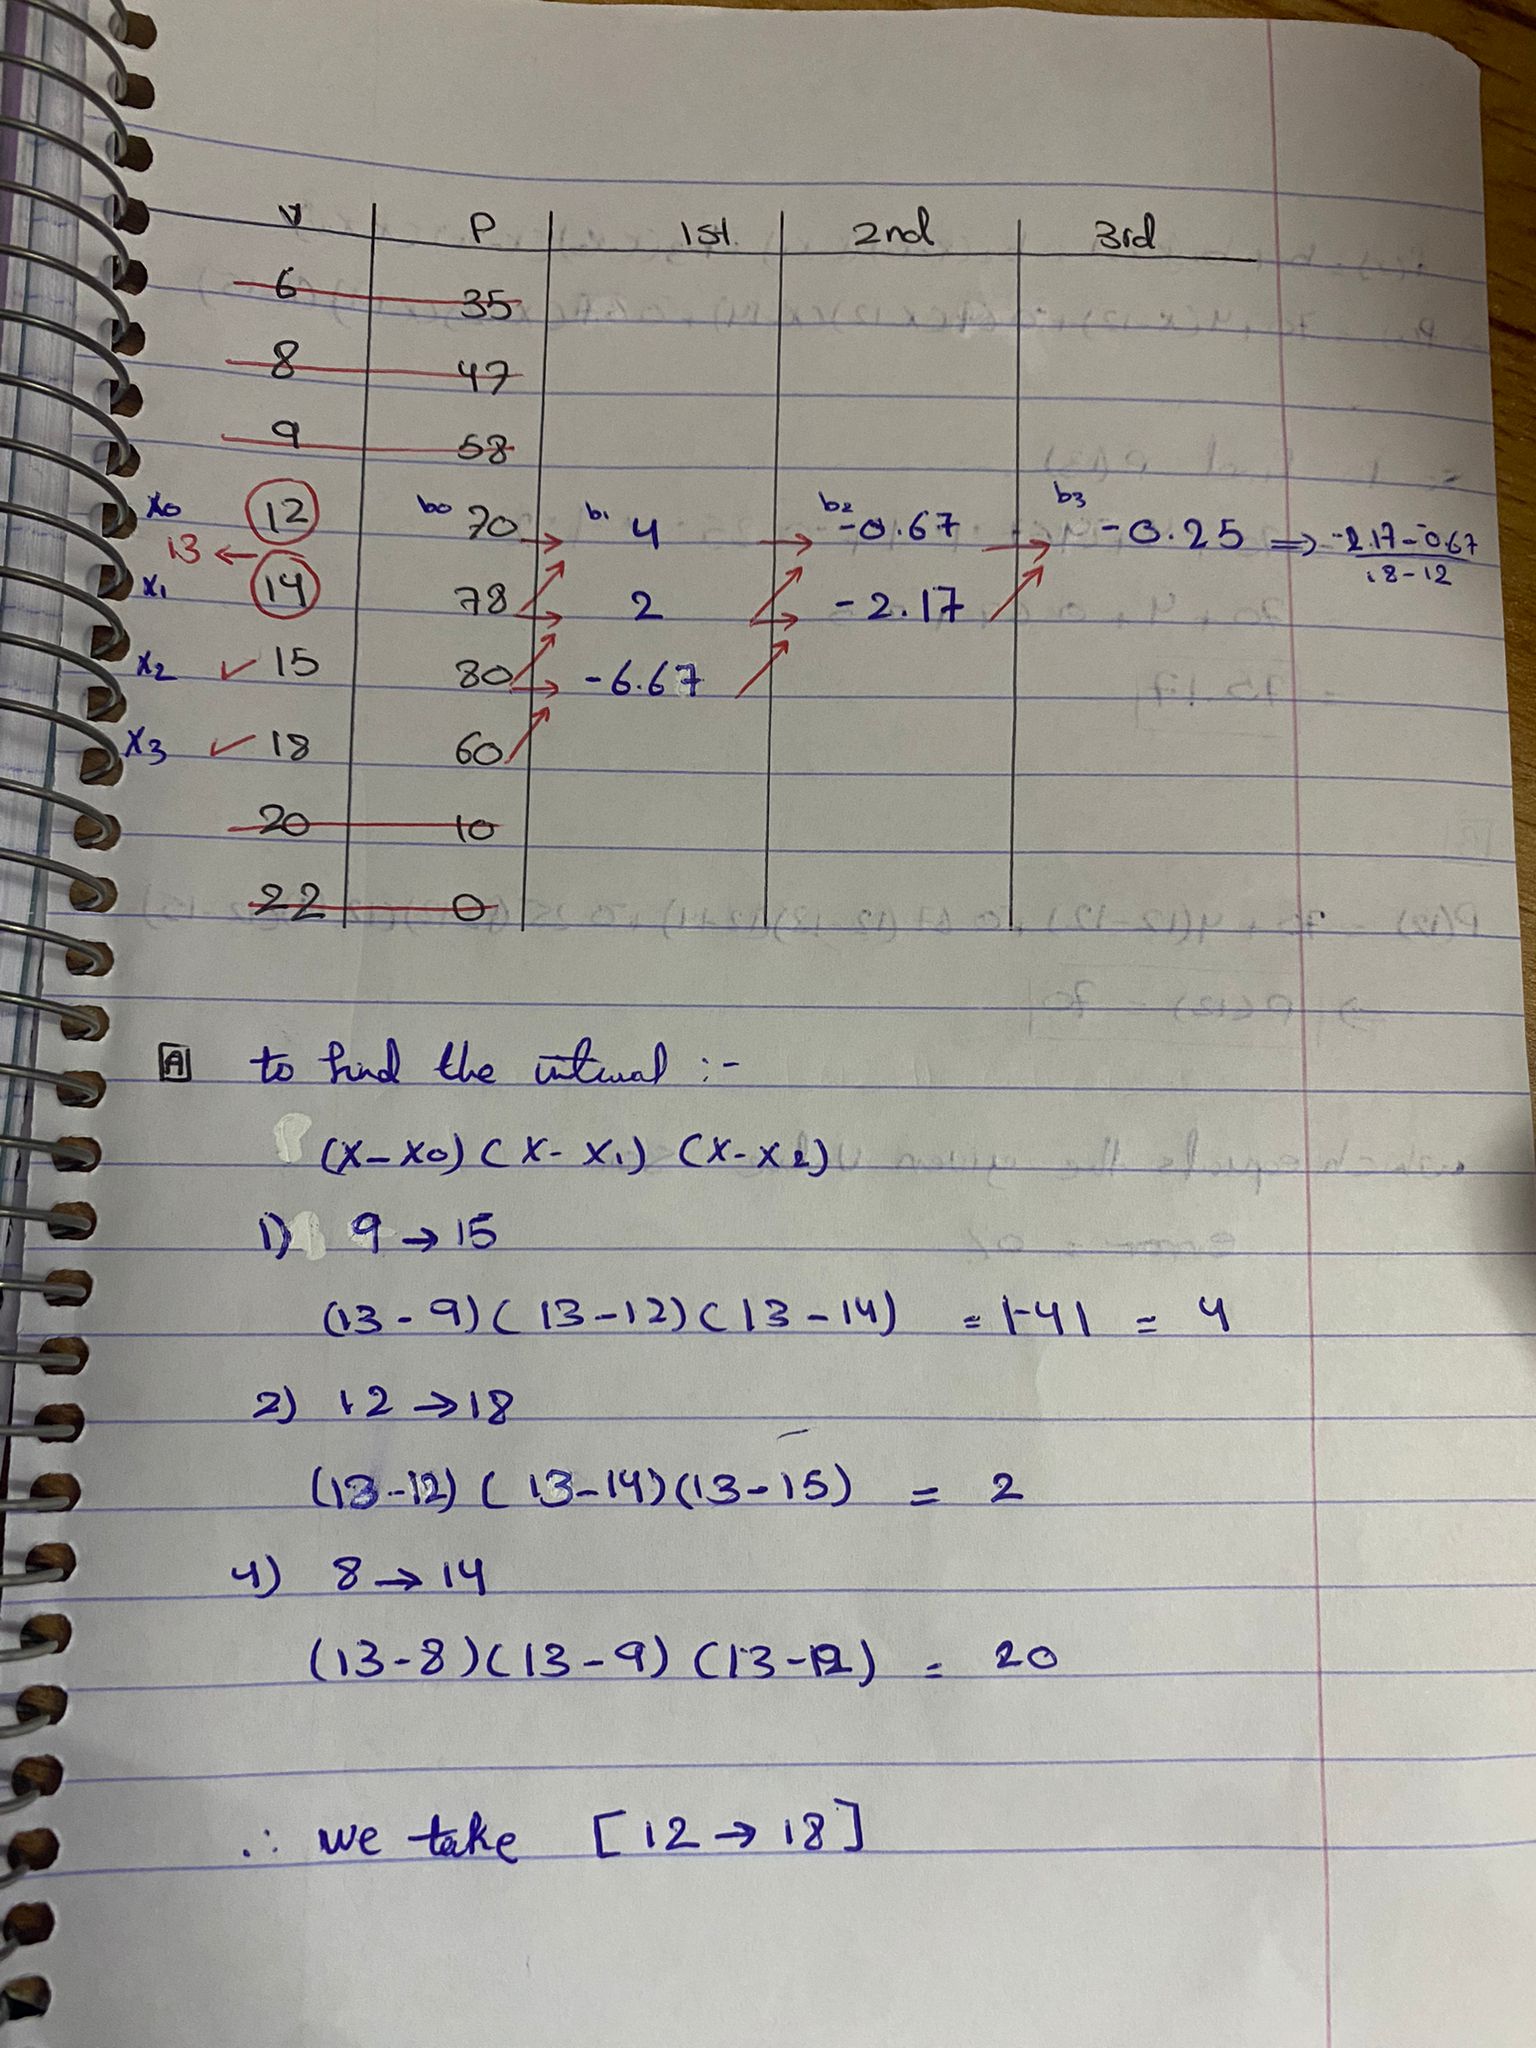 V P 1st 2nd 3rd
6 35
8 47
9 58
x0 12 b0 70 b1 4 b2 -0.67 b3 -0.25 ⇒ -2.17 - -0.67 / 18-12
13 ←
x1 14 78 2 -2.17
x2 ✓ 15 80 -6.67
x3 ✓ 18 60
20 10
22 0
A to find the interval :-
(x-x0) (x-x1) (x-x2)
1) 9 → 15
(13-9) (13-12) (13-14) = |-4| = 4
2) 12 → 18
(13-12) (13-14) (13-15) = 2
4) 8 → 14
(13-8) (13-9) (13-12) = 20
∴ we take [12 → 18]